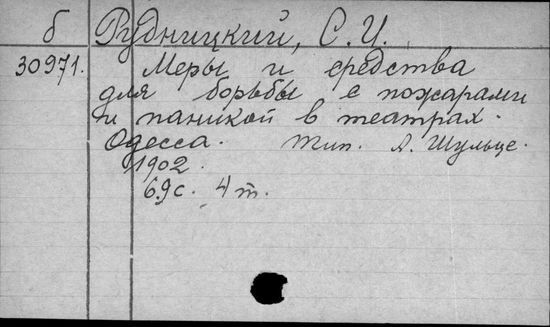 б Рудницкий, С.И.
30971. Меры и средства
для борьбы с пожарами
и паникой в театрах.
Одесса. Тип. А. Шульце.
1902.
69с. 4 т.